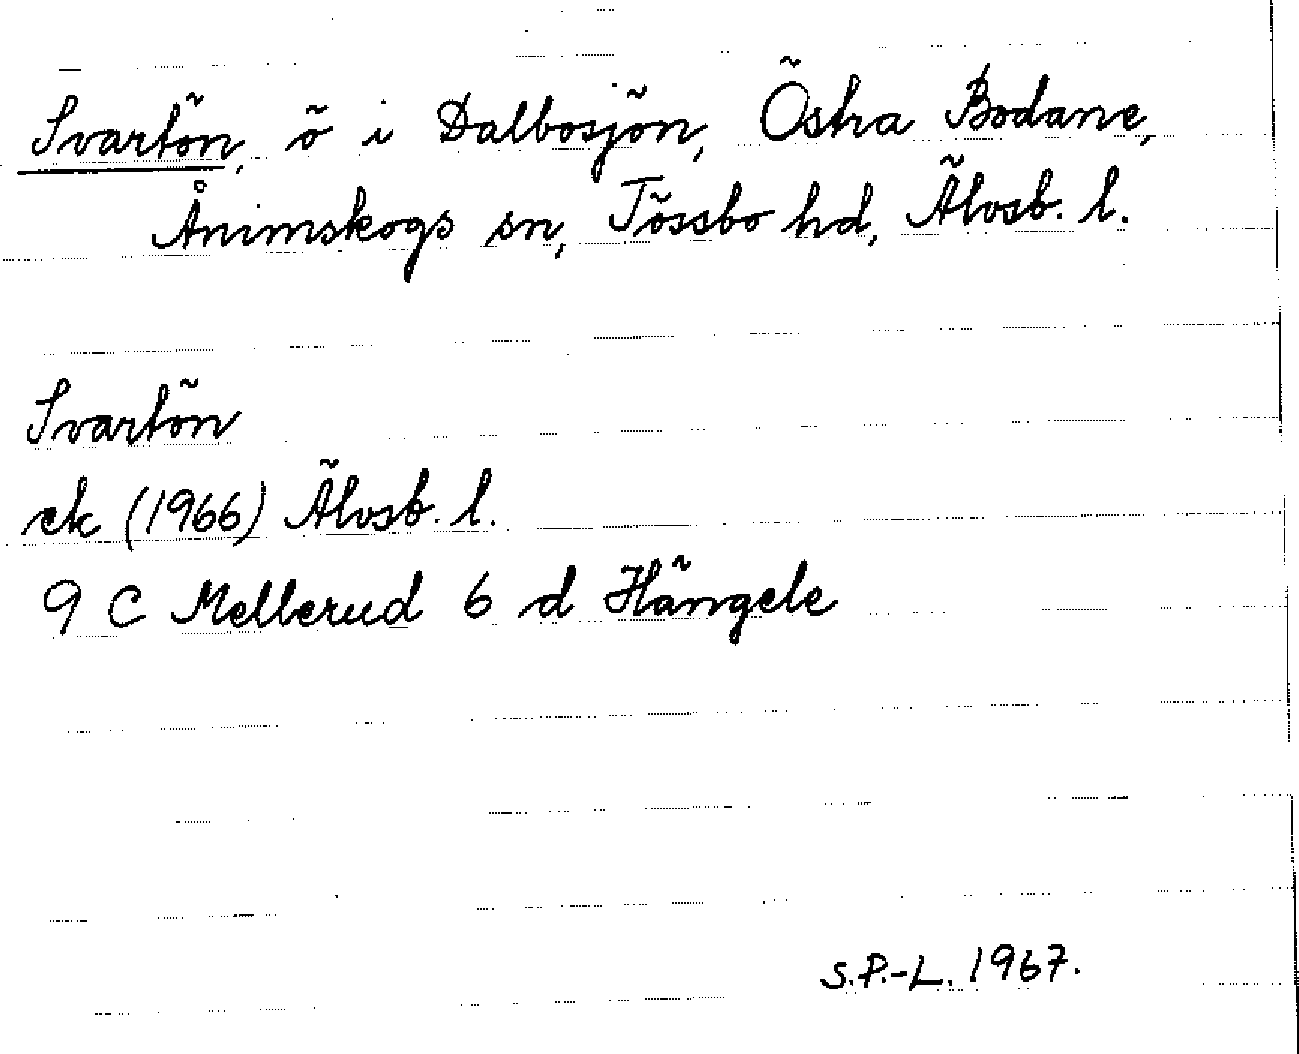 Svartön, ö i Dalbosjön, Östra Bodane,
Ånimskogs sn, Tössbo hd, Älvsb. l.
Svartön
ek (1966) Älvsb. l.
9 C Mellerud 6 d Hängele
S.P.-L. 1967.